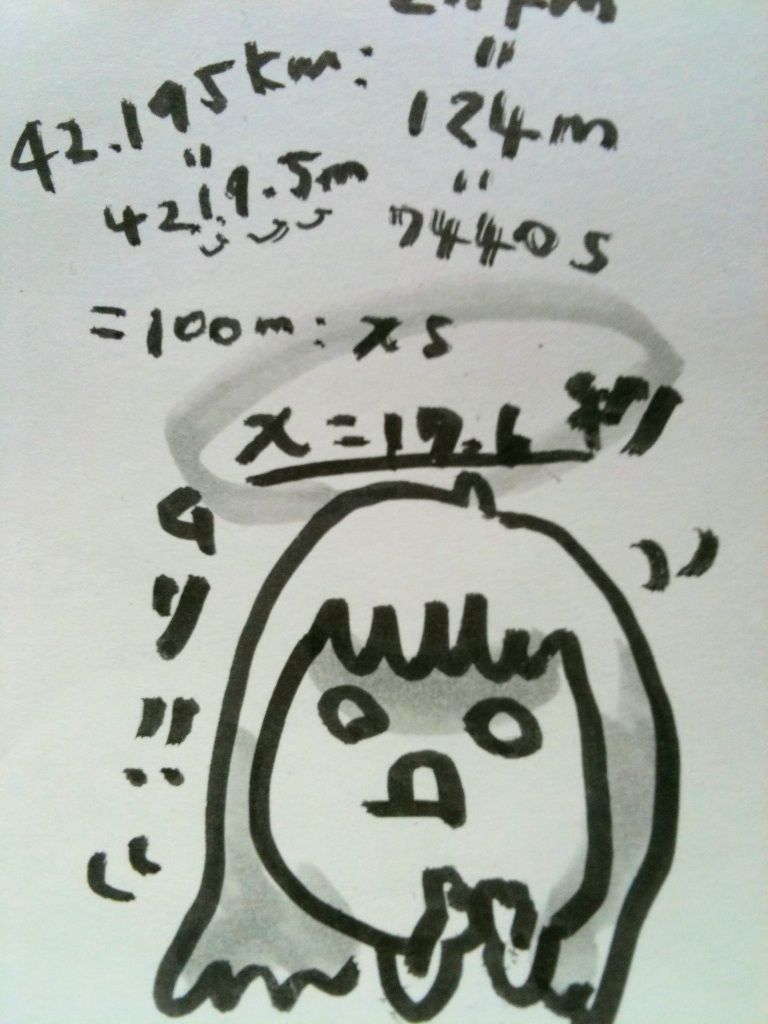 42.195km:
124m
4219.5m
7440s
=100m:xs
x=17.6
ムリ!!